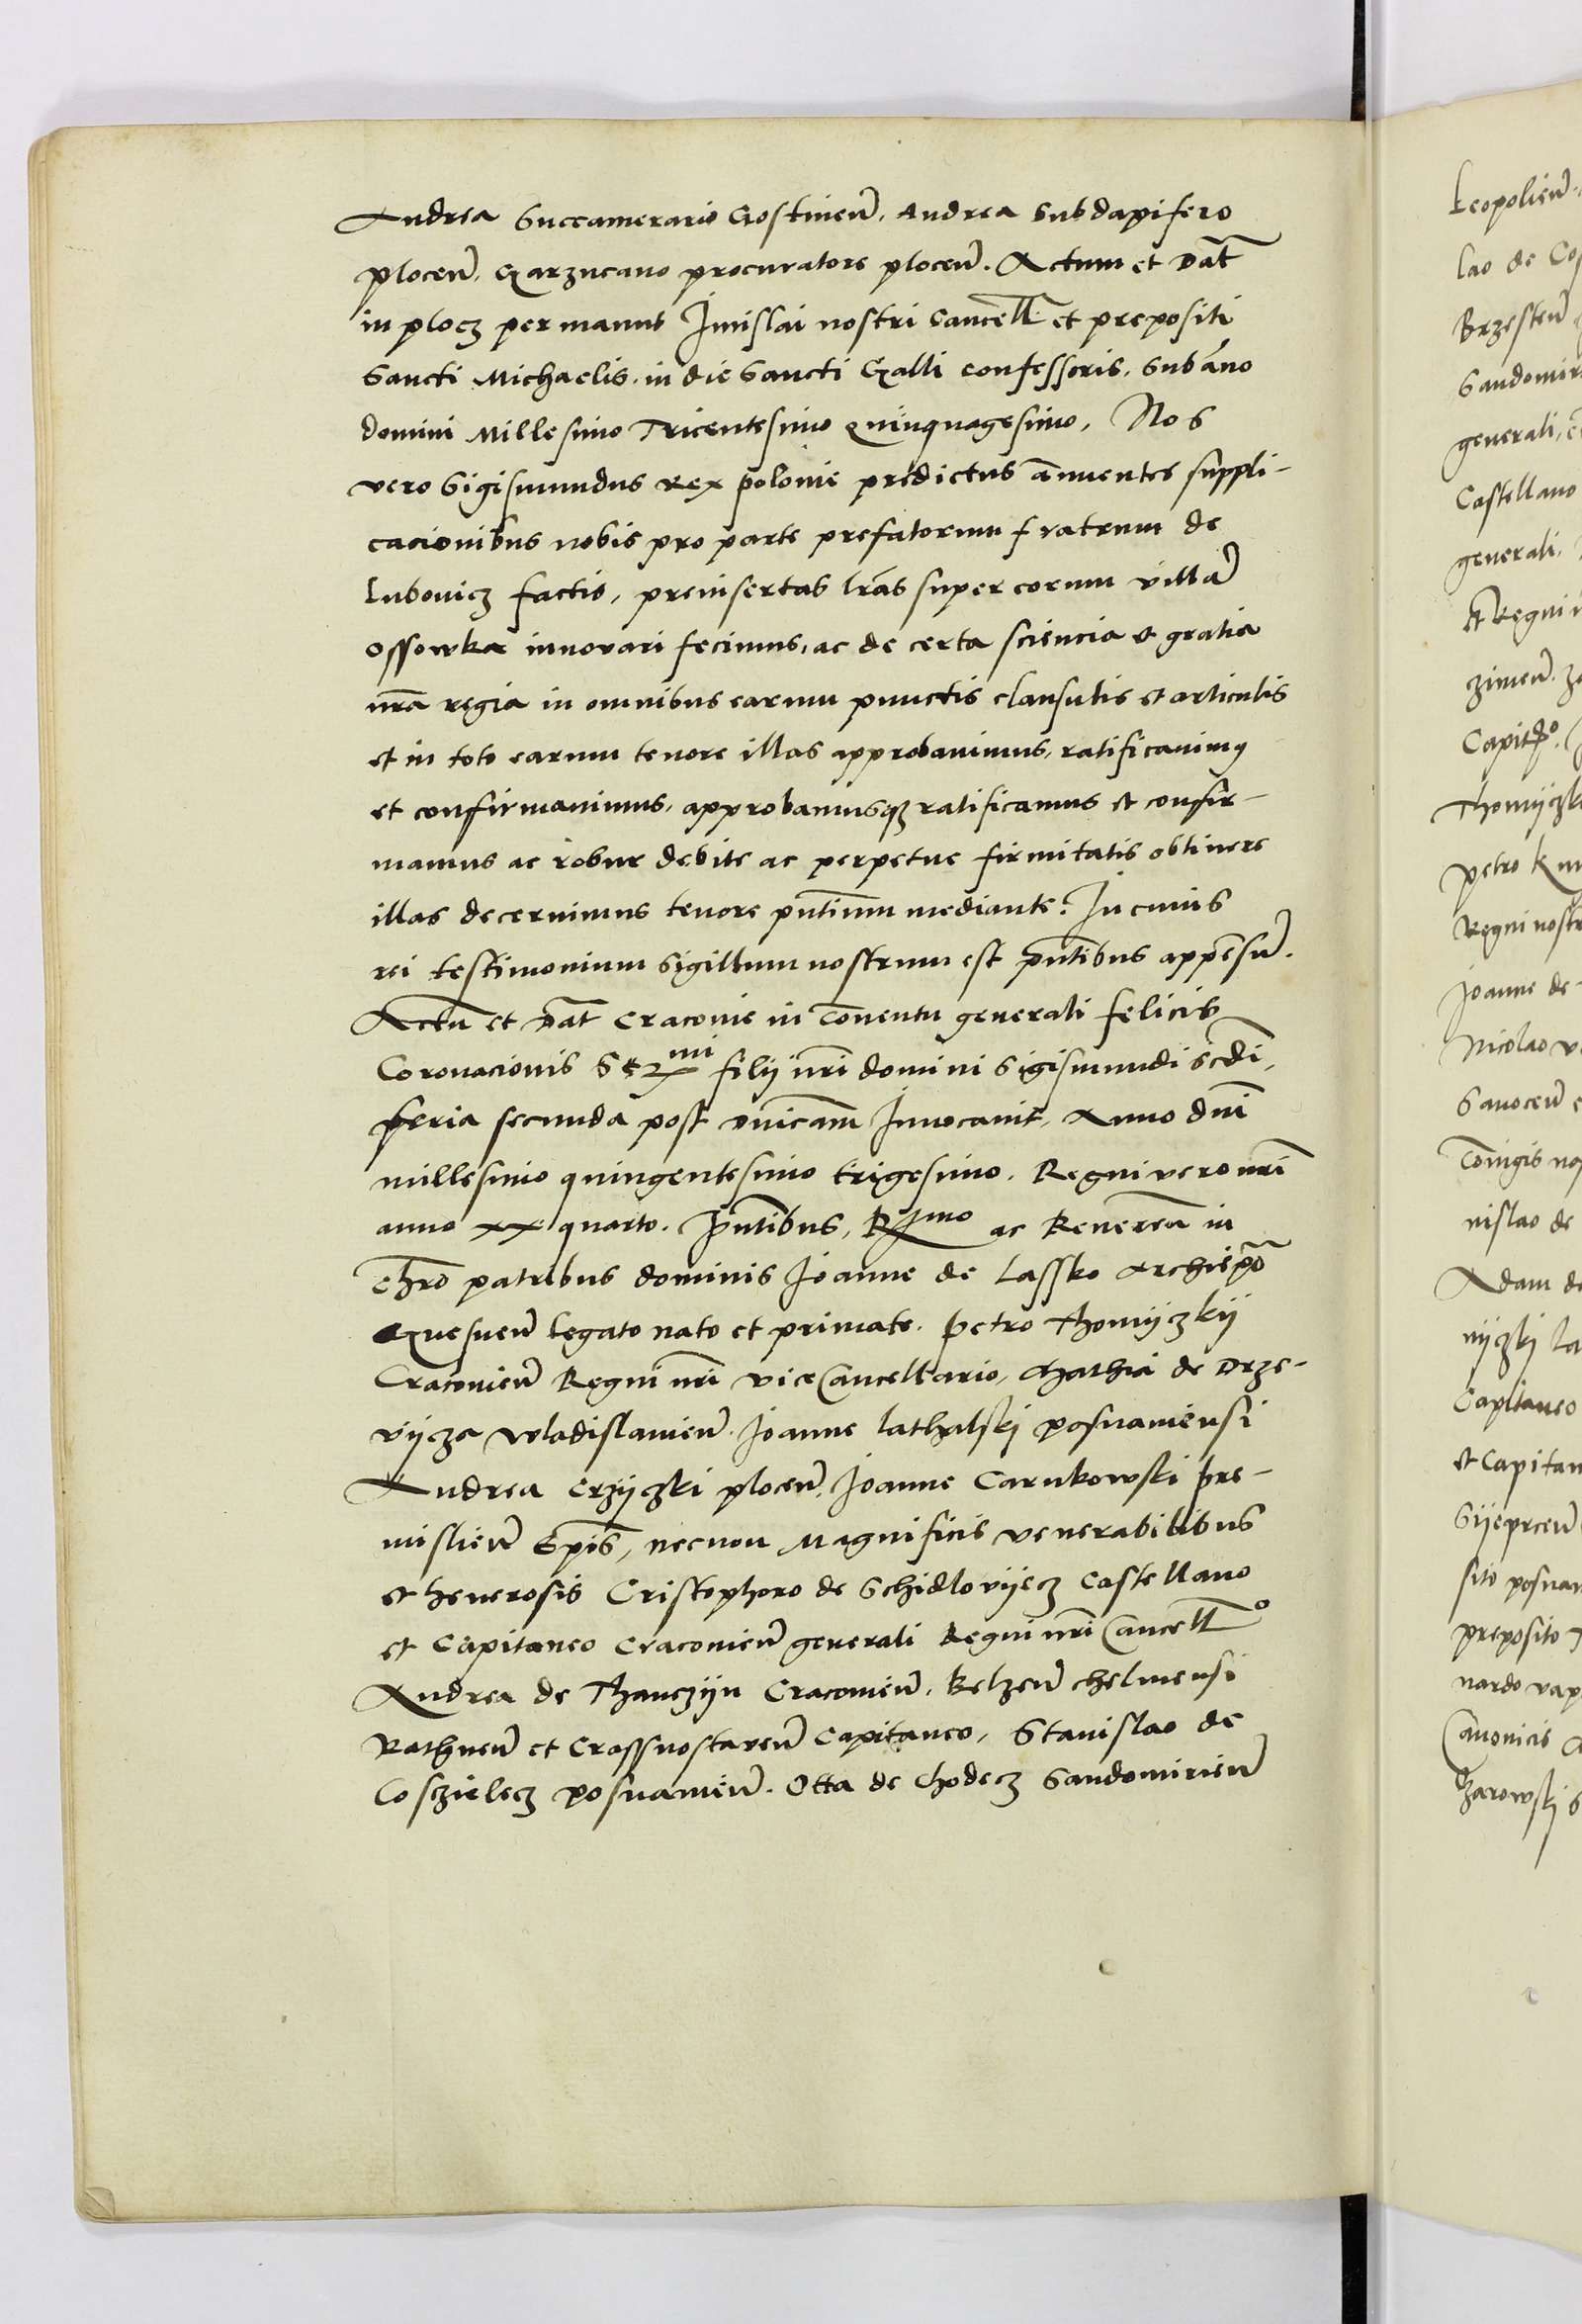 Andrea Succamerario Gostineñ. Andrea Subdapifero
ploceñ. Garzucano procuratore ploceñ. Actum et Dat̃
in plocz per manus Jmislai nostri Cancell̃ et prepositi
Sancti Michaelis. in die Sancti Galli confessoris. Sub año
domini Millesimo Tricentesimo Quinquagesimo. Nos
vero Sigismundus Rex polonie predictus annuentes suppli-
cacionibus nobis pro parte prefatorum fratrum de
Lubovicz factis, preinsertas lrãs super eorum villa
Ossowka innovari fecimus, ac de certa sciencia et gratia
nrã regia in omnibus earum punctis clausulis et articulis
et in toto earum tenore illas approbavimus, ratificavimꝰ
et confirmavimus, approbamusqꝫ ratificamus et confir-
mamus ac robur debite ac perpetue firmitatis obtinere
illas decernimus tenore pñtium mediante. In cuius
rei testimonium Sigillum nostrum est pñtibus appensũ.
Actũ et Dat̃ Cracovie in Cõventu generali felicis
Coronacionis Ser^mi filij nrĩ domini Sigismundi scd̃i,
feria secunda post dñicam Invocavit, Anno dñi
millesimo quingentesimo trigesimo. Regni vero nrĩ
anno xx quarto. pñtibus, R^mo ac Reverẽn in
chrõ patribus dominis Joanne de Lassko Archiepõ
Gnesneñ legato nato et primate. petro Thomijczkij
Cracovieñ Regni nrĩ vice Cancellario, Mathia de Drze-
vijcza Wladislavieñ. Joanne lathalski posnaniensi
Andrea Crzijczki ploceñ. Joanne Carnkowski pre-
mislieñ Epĩs, necnon Magnificis venerabilibus
et Generosis Cristophoro de Schidlovijecz Castellano
et Capitaneo Cracovieñ generali Regni nrĩ Cancell^o
Andrea de Thanczijn Cracovieñ. Belzeñ chelmensi
Rathneñ et Crassnostaveñ Capitaneo, Stanislao de
Cosczielecz posnanieñ. Otta de Chodecz Sandomirieñ
Leopolieñ.
lao de
Brzesteñ
generali,
Castellano
generali.
Regni
Capit^o.
petro
Regni
Joanne de
Nicolao
Sanoceñ
nislao de
Adam de
et
sito
preposito
nardo
Canonicis